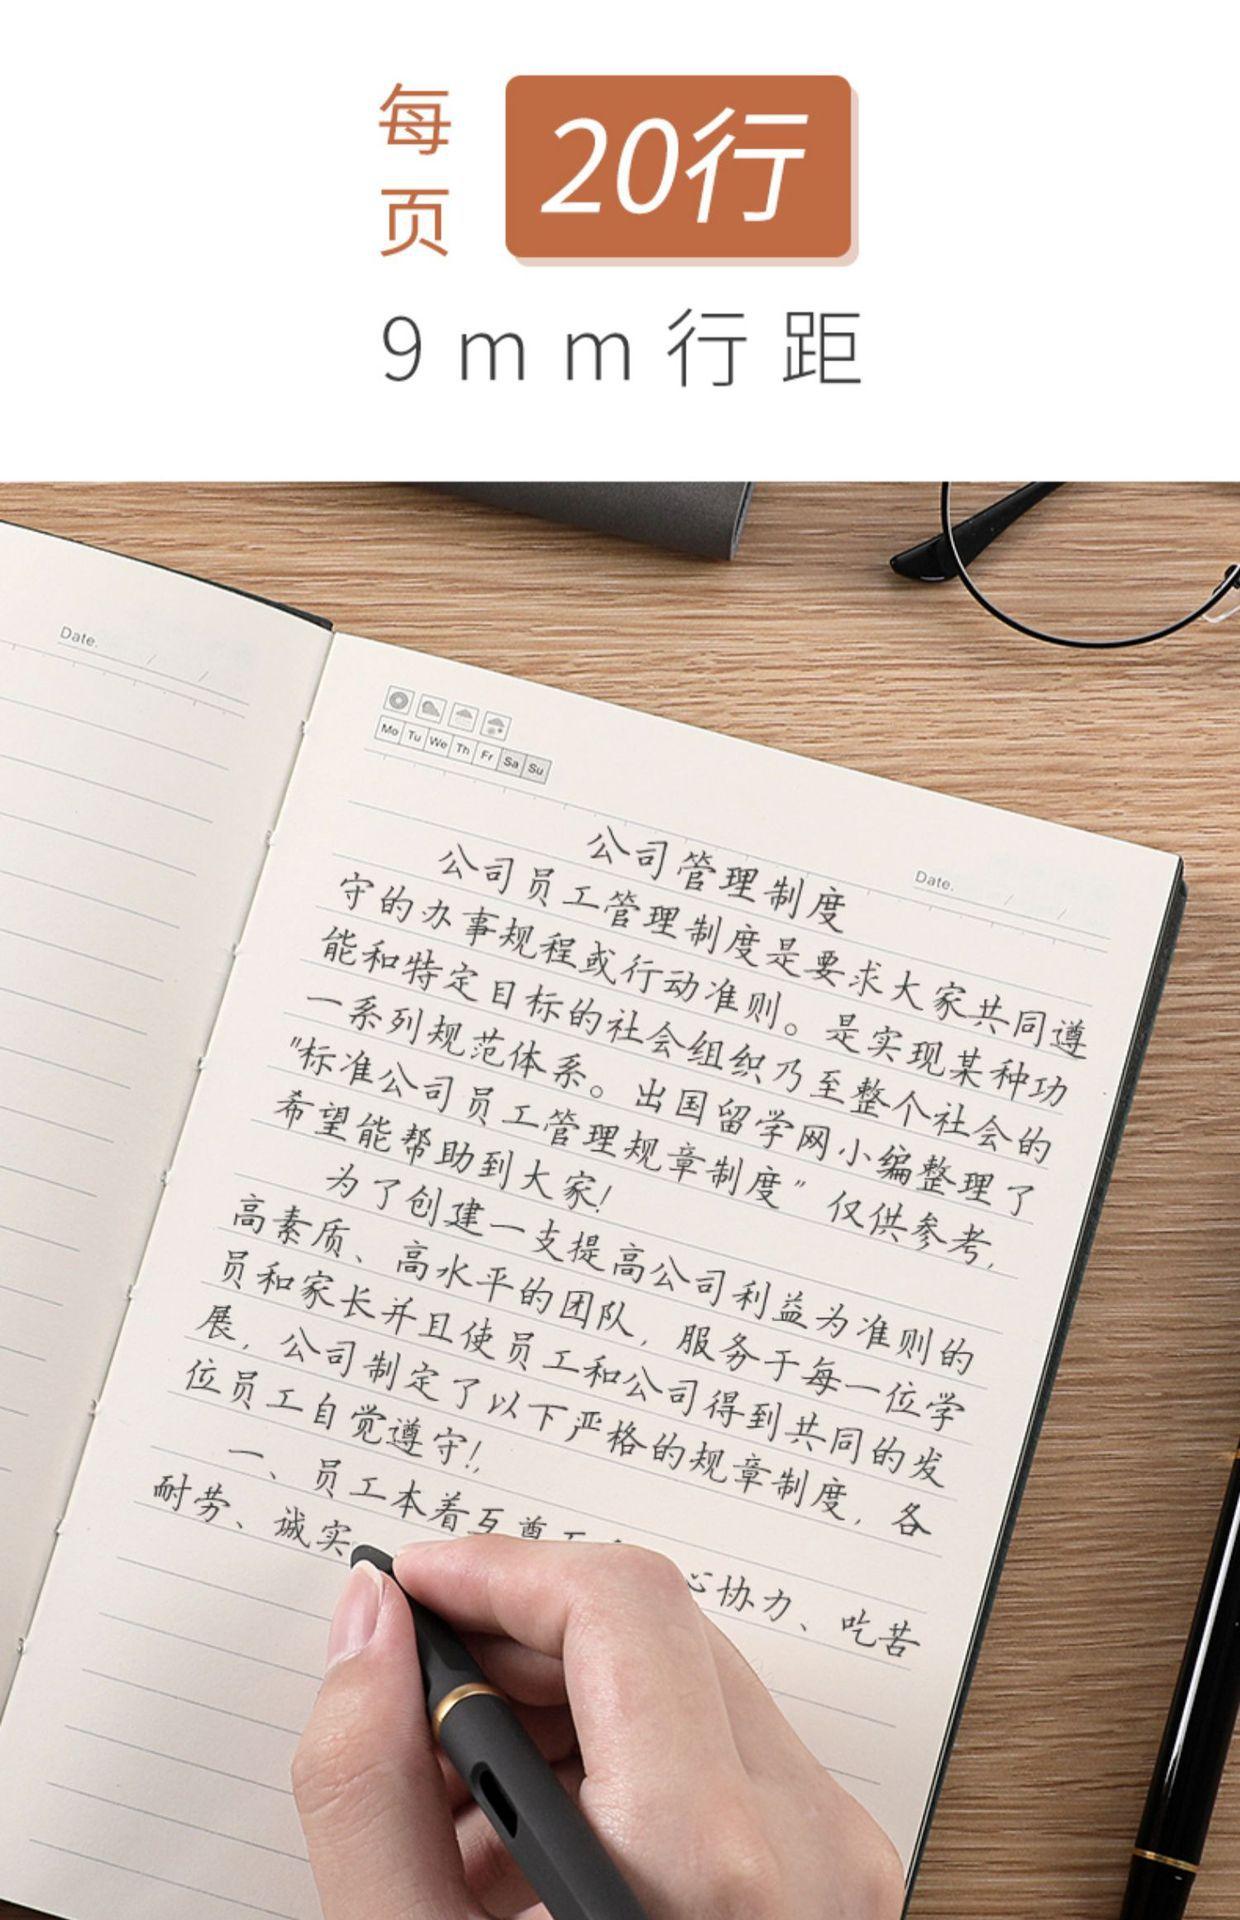 每页
20行
9mm行距
Date.
Mo Tu We Th Fr Sa Su
Date.
公司管理制度
公司员工管理制度是要求大家共同遵
守的办事规程或行动准则。是实现某种功
能和特定目标的社会组织乃至整个社会的
一系列规范体系。出国留学网小编整理了
"标准公司员工管理规章制度"仅供参考,
希望能帮助到大家!
为了创建一支提高公司利益为准则的
高素质、高水平的团队,服务于每一位学
员和家长并且使员工和公司得到共同的发
展,公司制定了以下严格的规章制度,各
位员工自觉遵守!,
一、员工本着互尊 心协力、吃苦
耐劳、诚实